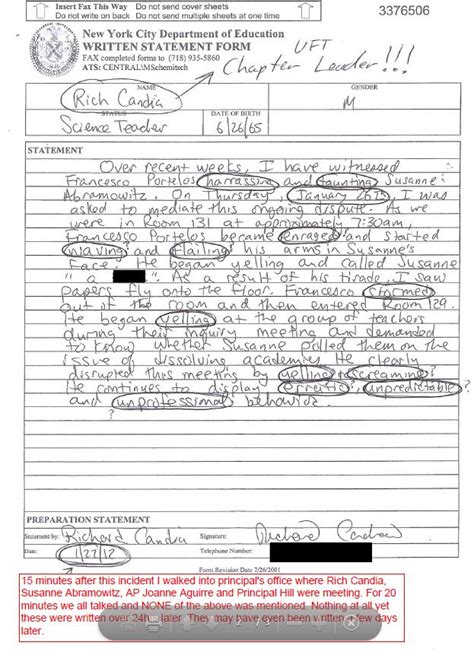 Insert Fax This Way Do not send cover sheets
Do not write on back Do not send multiple sheets at one time
3376506
New York City Department of Education
WRITTEN STATEMENT FORM
FAX completed forms to (718) 935-5860
ATS: CENTRAL\MSchemitsch
UFT
Chapter Leader!!!
NAME
GENDER
Rich Candia
M
STATUS
DATE OF BIRTH
Science Teacher
6/26/65
STATEMENT
Over recent weeks, I have witnessed
Francesco Portelos harrassing and taunting Susanne
Abramowitz. On Thursday, January 26th, I was
asked to mediate this ongoing dispute. As we
were in Room 131 at approximately 7:30am,
Francesco Portelos became enraged and started
waving and flailing his arms in Susanne's
face. He began yelling and called Susanne
"a". As a result of his tirade, I saw
papers fly onto the floor. Francesco stormed
out of the room and then entered Room 129.
He began yelling at the group of teachers
during their inquiry meeting and demanded
to know whether Susanne polled them on the
issue of dissolving academies. He clearly
disrupted this meeting by yelling & screaming?
He continues to display erreitic?, unpredictable?
and unprofessional behavior
?
PREPARATION STATEMENT
Statement by: Richard Candia Signature: Richard Candia
Date: 1/27/12 Telephone Number:
Form Revision Date 7/26/2001
15 minutes after this incident I walked into principal's office where Rich Candia,
Susanne Abramowitz, AP Joanne Aguirre and Principal Hill were meeting. For 20
minutes we all talked and NONE of the above was mentioned. Nothing at all yet
these were written over 24hrs later. They may have even been written a few days
later.